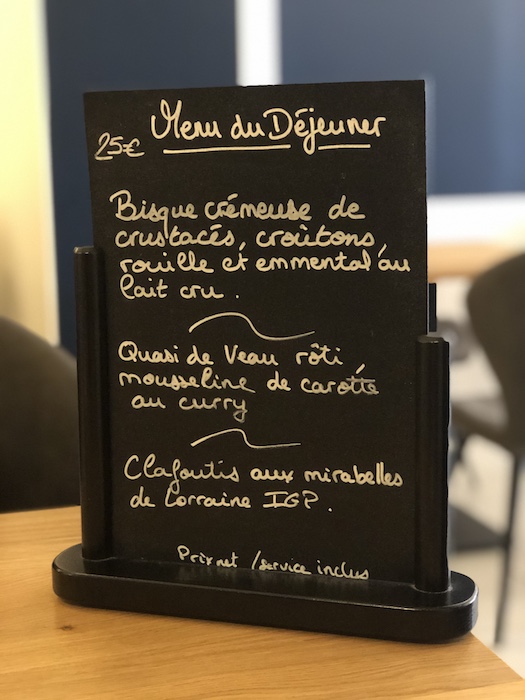 Menu du Déjeuner
25€
Bisque crémeuse de
crustacés, croûtons,
rouille et emmental au
lait cru.
Quasi de Veau rôti,
mousseline de carotte
au curry
Clafoutis aux mirabelles
de Lorraine IGP.
Prix net / service inclus